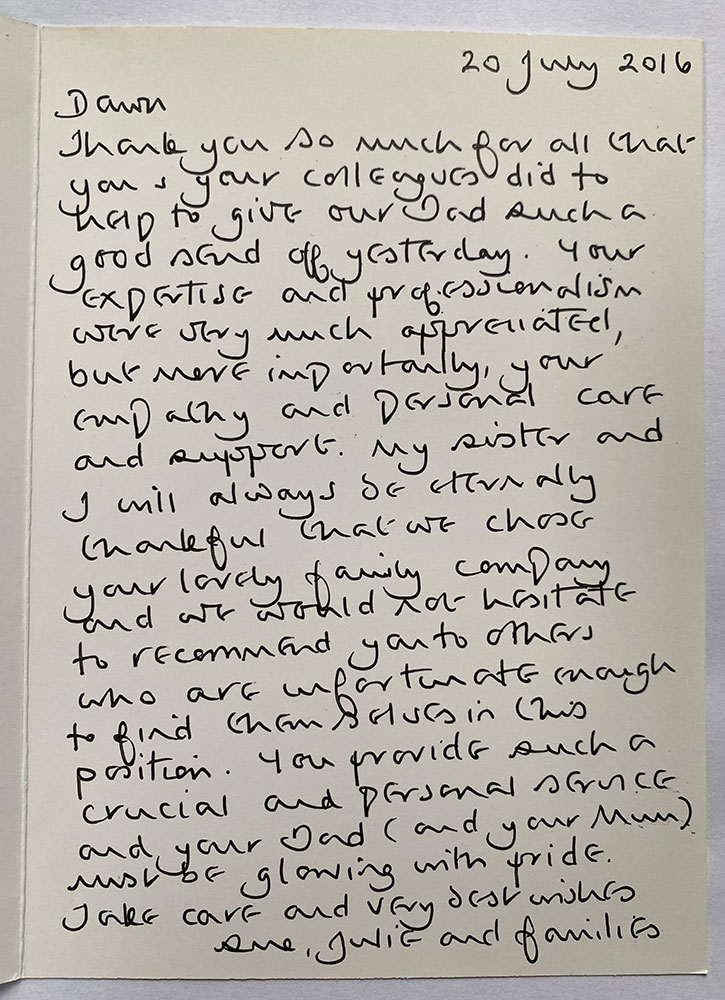 20 July 2016
Dawn
Thank you so much for all that
you & your colleagues did to
help to give our Dad such a
good send off yesterday. Your
expertise and professionalism
were very much appreciated,
but more importantly, your
empathy and personal care
and support. My sister and
I will always be eternally
thankful that we chose
your lovely family company
and we would not hesitate
to recommend you to others
who are unfortunate enough
to find themselves in this
position. You provide such a
crucial and personal service
and your Dad (and your Mum)
must be glowing with pride.
Take care and very best wishes
Sue, Julie and families